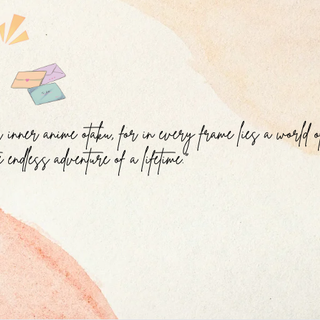 inner anime otaku, for in every frame lies a world of
endless adventure of a lifetime.